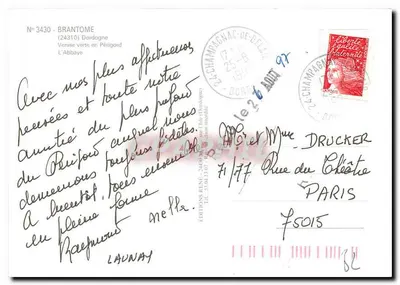 N° 3430 - BRANTOME
(24310) Dordogne
Venise verte du Périgord
L'Abbaye
Avec nos plus affectueuses
pensées et toute notre
amitié du plus profond
du Périgord auquel nous
demeurons toujours fidèles.
A bientôt, tous ensemble
en pleine forme
Raymond Nelly
LAUNAY
24 CHAMPAGNAC-DE-BELAIR
le 26 AOUT 97
Liberté
égalité
fraternité
24 CHAMPAGNAC
M. et Mme DRUCKER
71/77 Rue du Théâtre
PARIS
75015